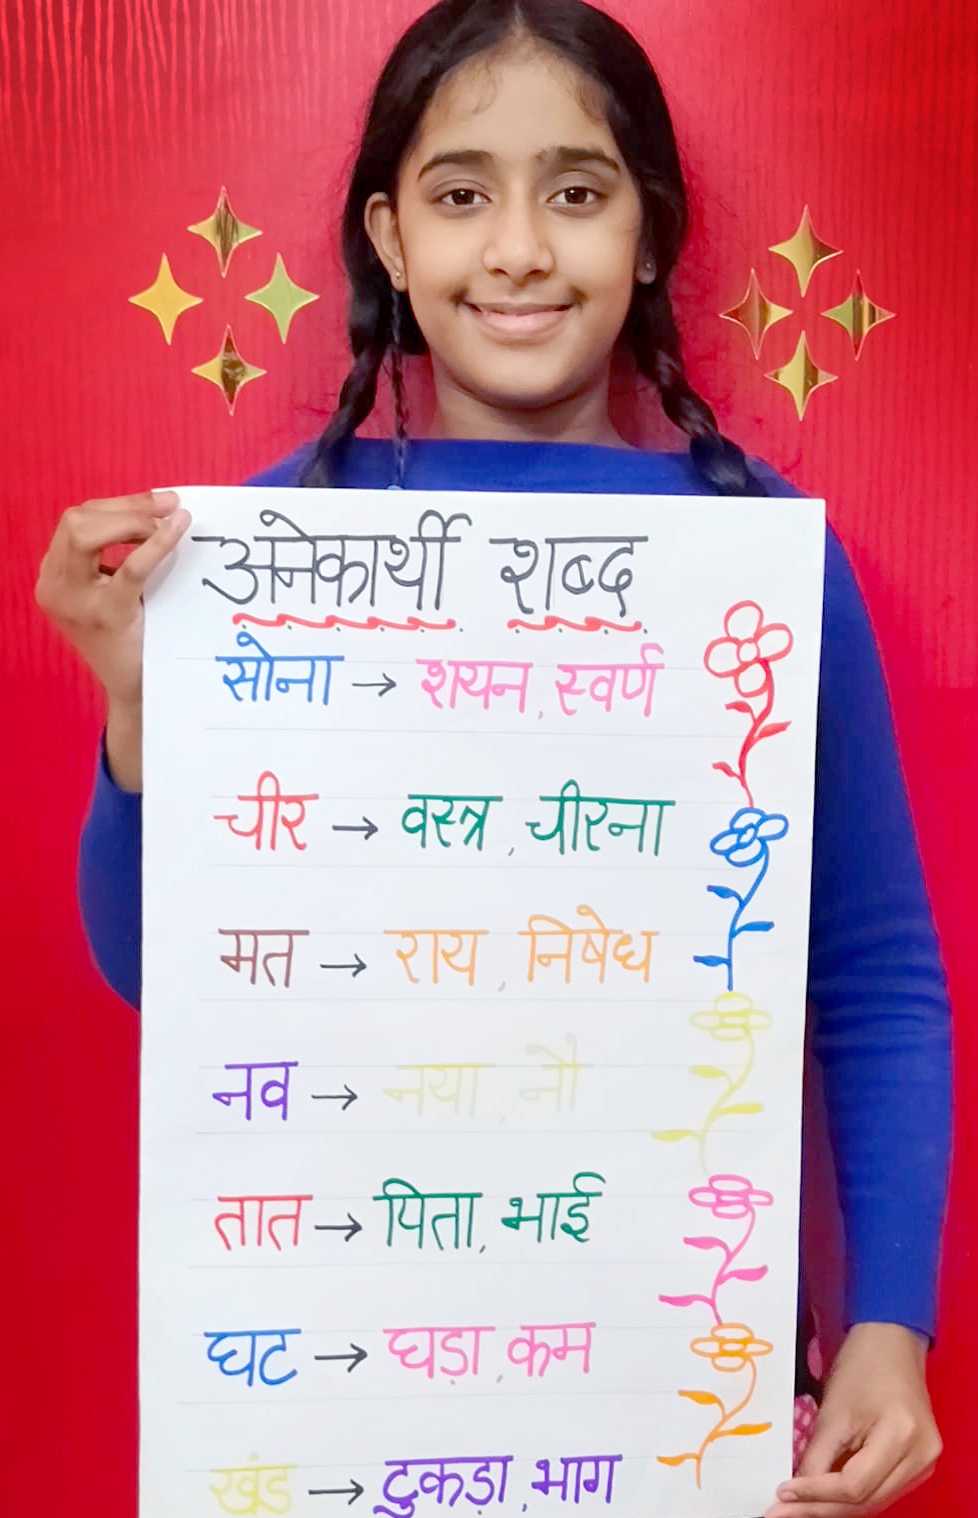 अनेकार्थी शब्द
सोना → शयन, स्वर्ण
चीर → वस्त्र, चीरना
मत → राय, निषेध
नव → नया, नौ
तात → पिता, भाई
घट → घड़ा, कम
खंड → टुकड़ा, भाग